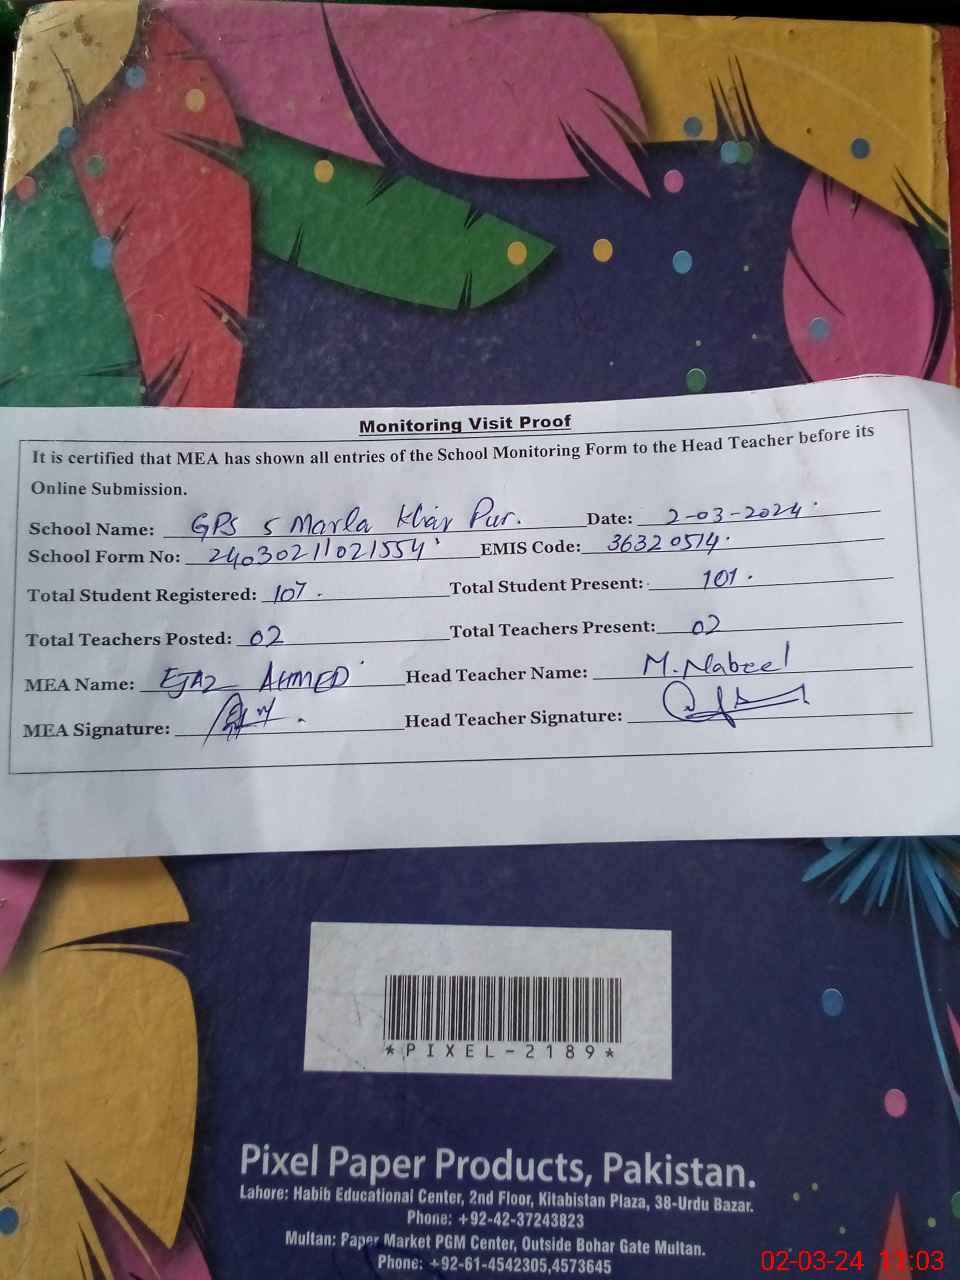 Monitoring Visit Proof
It is certified that MEA has shown all entries of the School Monitoring Form to the Head Teacher before its
Online Submission.
School Name: GPS 5 Marla Khair Pur. Date: 2-03-2024
School Form No: 24030211021554 EMIS Code: 36320514.
Total Student Registered: 107. Total Student Present: 101.
Total Teachers Posted: 02 Total Teachers Present: 02
MEA Name: EJAZ AHMED Head Teacher Name: M. Nabeel
MEA Signature: Head Teacher Signature:
*PIXEL-2189*
Pixel Paper Products, Pakistan.
Lahore: Habib Educational Center, 2nd Floor, Kitabistan Plaza, 38-Urdu Bazar.
Phone: +92-42-37243823
Multan: Paper Market PGM Center, Outside Bohar Gate Multan.
Phone: +92-61-4542305,4573645
02-03-24 11:03